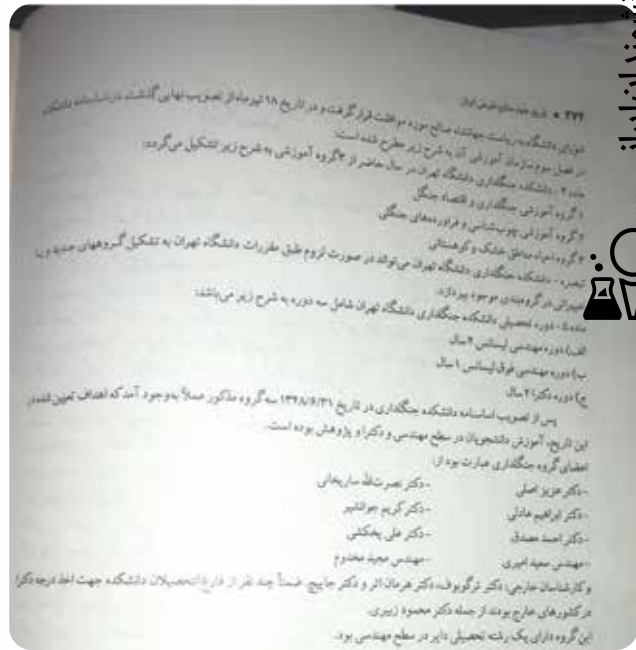 ۴۷۴ ■ تاریخ علوم منابع طبیعی ایران
شورای دانشگاه به ریاست جهانشاه صالح مورد موافقت قرار گرفت و در تاریخ ۱۸ تیرماه از تصویب نهایی گذشت. در اساسنامه دانشکده
در فصل سوم سازمان آموزشی آن به شرح زیر مطرح شده است:
ماده ۴ - دانشکده جنگلداری دانشگاه تهران در حال حاضر از ۳ گروه آموزشی به شرح زیر تشکیل می‌گردد:
۱ گروه آموزشی جنگلداری و اقتصاد جنگل
۲ گروه آموزشی چوب‌شناسی و فراورده‌های جنگلی
۳ گروه احیاء مناطق خشک و کوهستانی
تبصره - دانشکده جنگلداری دانشگاه تهران می‌تواند در صورت لزوم طبق مقررات دانشگاه تهران به تشکیل گروههای جدید و یا
تغییراتی در گروه‌بندی موجود بپردازد.
ماده ۵ - دوره تحصیلی دانشکده جنگلداری دانشگاه تهران شامل سه دوره به شرح زیر می‌باشد:
الف) دوره مهندسی لیسانس ۴ سال
ب) دوره مهندسی فوق لیسانس ۱ سال
ج) دوره دکترا ۲ سال
پس از تصویب اساسنامه دانشکده جنگلداری در تاریخ ۱۳۴۸/۶/۳۱ سه گروه مذکور عملاً به‌وجود آمد که اهداف تعیین شده در
این تاریخ، آموزش دانشجویان در سطح مهندسی و دکترا و پژوهش بوده است.
اعضای گروه جنگلداری عبارت بود از:
-دکتر عزیز اصلی -دکتر نصرت‌الله ساریخانی
-دکتر ابراهیم عادلی -دکتر کریم جوانشیر
-دکتر احمد مصدق -دکتر علی یخکشی
-مهندس سعید امیری -مهندس مجید مخدوم
و کارشناسان خارجی: دکتر ترگوبوف، دکتر هرمان اتر و دکتر جاپیچ. ضمناً چند نفر از فارغ‌التحصیلان دانشکده جهت اخذ درجه دکترا
در کشورهای خارج بودند از جمله دکتر محمود زبیری.
این گروه دارای یک رشته تحصیلی دایر در سطح مهندسی بود.